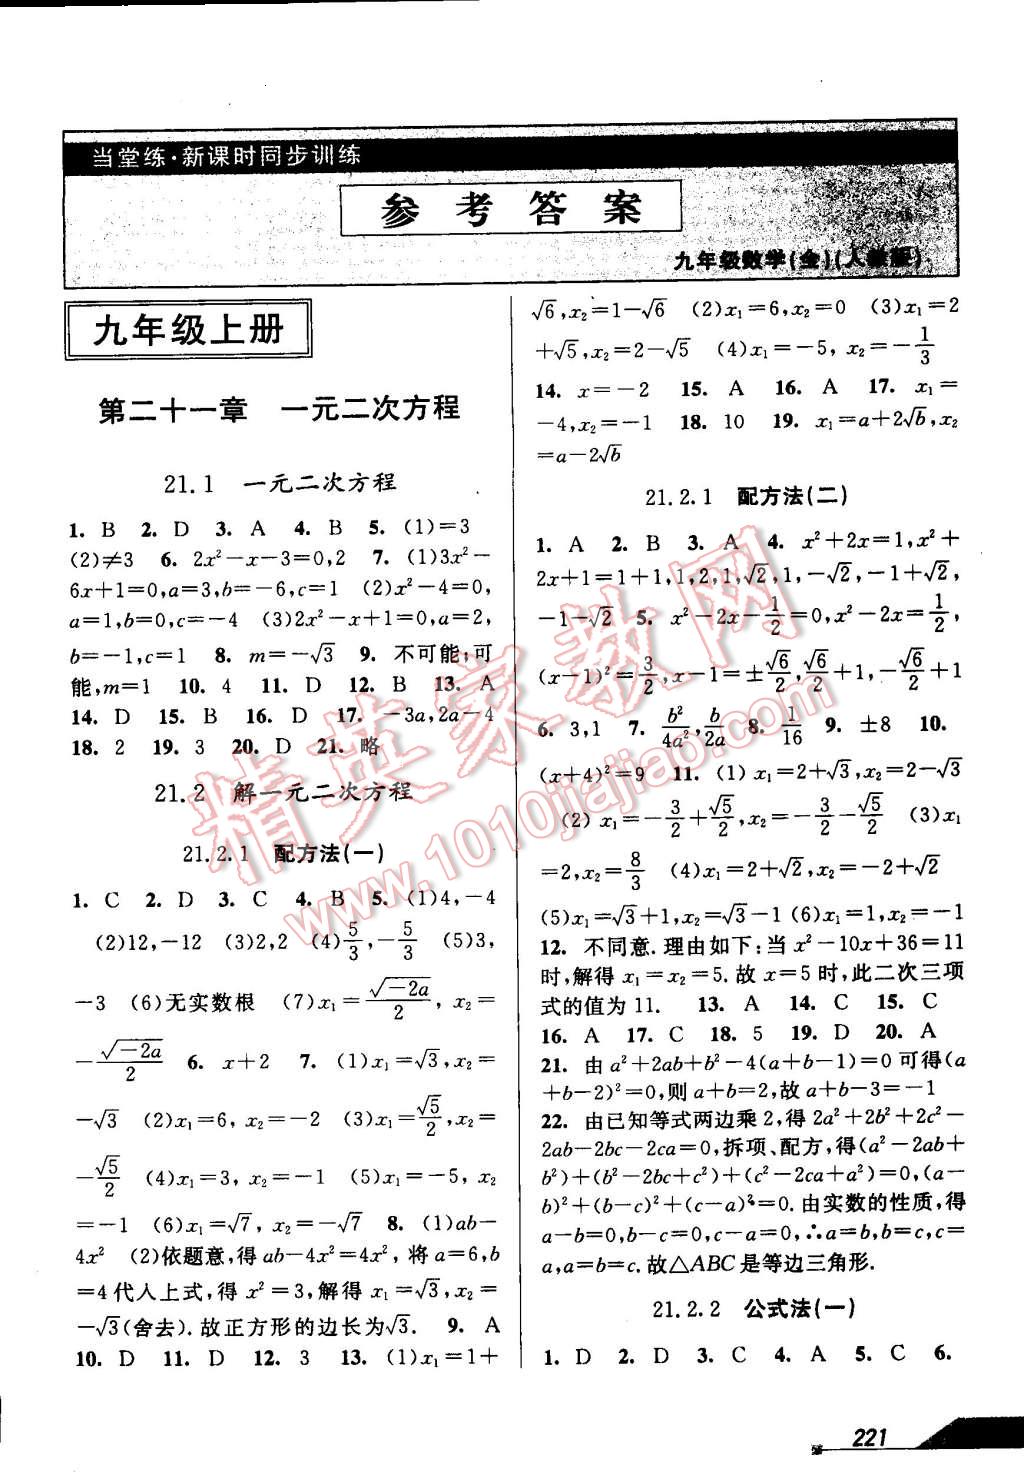 当堂练·新课时同步训练
参考答案
九年级数学(全)(人教版)
九年级上册
第二十一章 一元二次方程
21.1 一元二次方程
1. B 2. D 3. A 4. B 5. (1)=3
(2)≠3 6. 2x²-x-3=0,2 7. (1)3x²-
6x+1=0,a=3,b=-6,c=1 (2)x²-4=0,
a=1,b=0,c=-4 (3)2x²-x+1=0,a=2,
b=-1,c=1 8. m=-√3 9. 不可能;可
能,m=1 10. 4 11. D 12. B 13. A
14. D 15. B 16. D 17. -3a,2a-4
18. 2 19. 3 20. D 21. 略
21.2 解一元二次方程
21.2.1 配方法(一)
1. C 2. D 3. C 4. B 5. (1)4,-4
(2)12,-12 (3)2,2 (4)5/3,-5/3 (5)3,
-3 (6)无实数根 (7)x₁=√(-2a)/2, x₂=
-√(-2a)/2 6. x+2 7. (1)x₁=√3,x₂=
-√3 (2)x₁=6,x₂=-2 (3)x₁=√5/2,x₂=
-√5/2 (4)x₁=3, x₂=-1 (5)x₁=-5, x₂
=-1 (6)x₁=√7, x₂=-√7 8. (1)ab-
4x² (2)依题意,得 ab-4x²=4x², 将 a=6,b
=4 代人上式,得 x²=3,解得 x₁=√3,x₂=
-√3(舍去). 故正方形的边长为√3. 9. A
10. D 11. D 12. 3 13. (1)x₁=1+
√6,x₂=1-√6 (2)x₁=6,x₂=0 (3)x₁=2
+√5,x₂=2-√5 (4)x₁=-5, x₂=-1/3
14. x=-2 15. A 16. A 17. x₁=
-4,x₂=-1 18. 10 19. x₁=a+2√b,x₂
=a-2√b
21.2.1 配方法(二)
1. A 2. B 3. A 4. x²+2x=1,x²+
2x+1=1+1,1,2,1,√2,1,-√2,-1+√2,
-1-√2 5. x²-2x-1/2=0,x²-2x=1/2,
(x-1)²=3/2,x-1=±√6/2,√6/2+1,-√6/2+1
6. 3,1 7. b²/4a²,b/2a 8. 1/16 9. ±8 10.
(x+4)²=9 11. (1) x₁=2+√3,x₂=2-√3
(2) x₁=-3/2+√5/2,x₂=-3/2-√5/2 (3)x₁
=2,x₂=8/3 (4)x₁=2+√2,x₂=-2+√2
(5)x₁=√3+1,x₂=√3-1 (6)x₁=1,x₂=-1
12. 不同意. 理由如下:当 x²-10x+36=11
时,解得 x₁=x₂=5. 故 x=5 时,此二次三项
式的值为 11. 13. A 14. C 15. C
16. A 17. C 18. 5 19. D 20. A
21. 由 a²+2ab+b²-4(a+b-1)=0 可得(a
+b-2)²=0,则 a+b=2,故 a+b-3=-1
22. 由已知等式两边乘 2,得 2a²+2b²+2c²-
2ab-2bc-2ca=0,拆项、配方,得(a²-2ab+
b²)+(b²-2bc+c²)+(c²-2ca+a²)=0,(a-
b)²+(b-c)²+(c-a)²=0. 由实数的性质,得
a-b=0,b-c=0,c-a=0,∴a=b,b=c,c=
a,a=b=c. 故△ABC 是等边三角形.
21.2.2 公式法(一)
1. D 2. D 3. C 4. A 5. C 6.
221
精英家教网
www.1010jiajiao.com